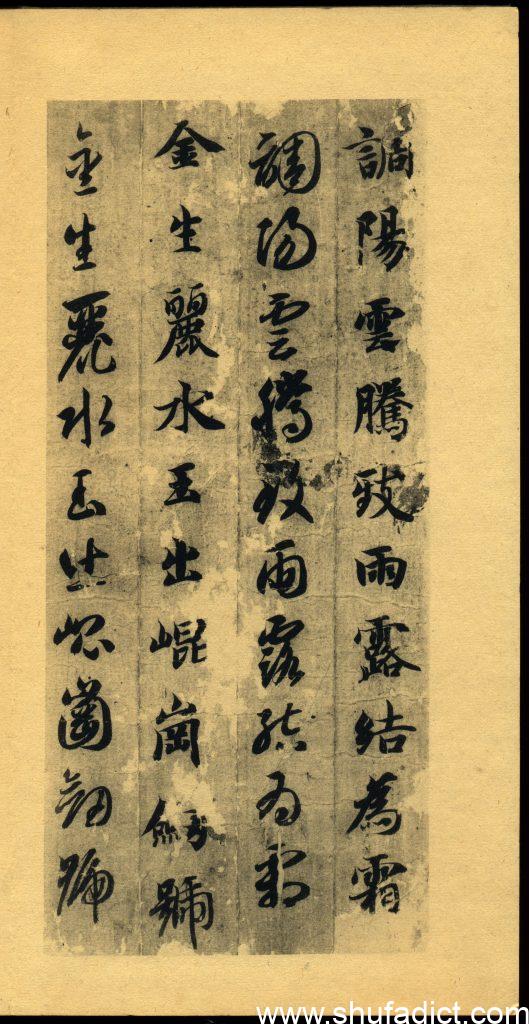 調陽雲騰致雨露結為霜
調陽雲騰致雨露結為霜
金生麗水玉出崐崗號
金生麗水玉出崐崗劒號
www.shufadict.com